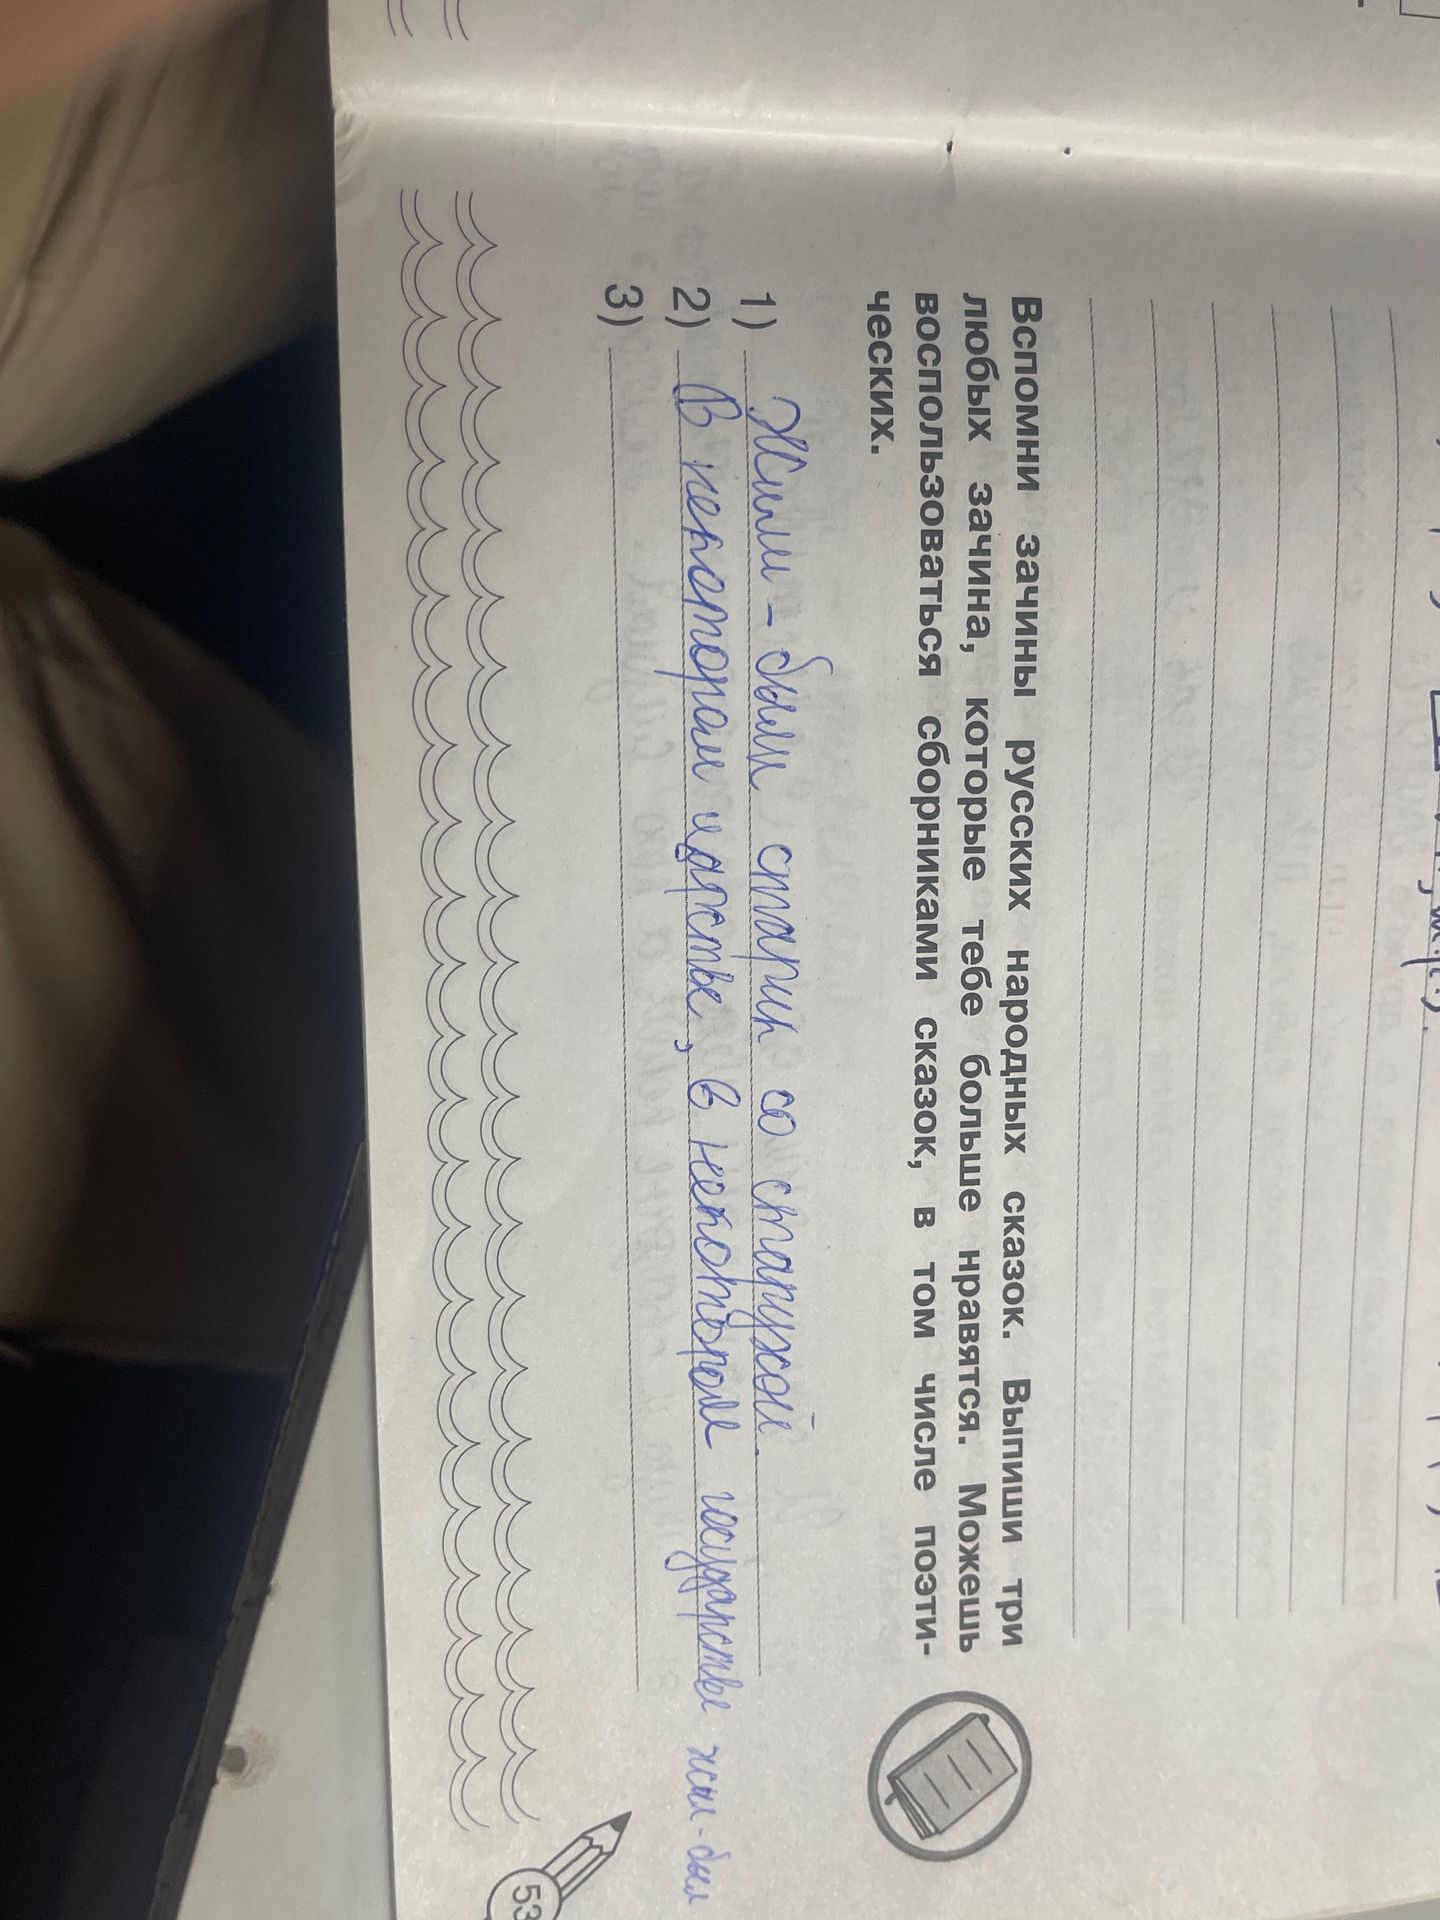 Вспомни зачины русских народных сказок. Выпиши три
любых зачина, которые тебе больше нравятся. Можешь
воспользоваться сборниками сказок, в том числе поэти-
ческих.
1) Жили-были старик со старухой.
2) В некотором царстве, в некотором государстве жил-был
3)
53